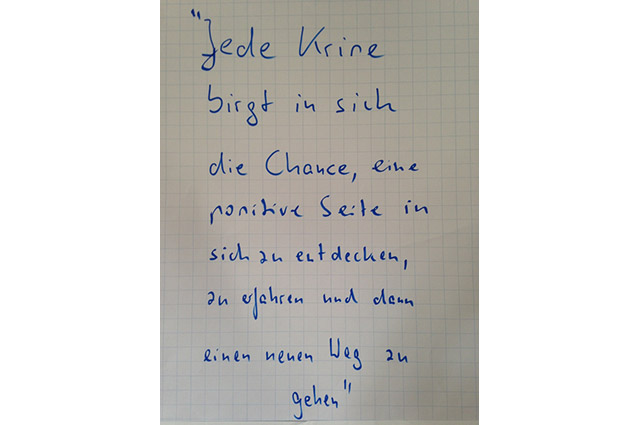 "Jede Krise
birgt in sich
die Chance, eine
positive Seite in
sich zu entdecken,
zu erfahren und dann
einen neuen Weg zu
gehen"